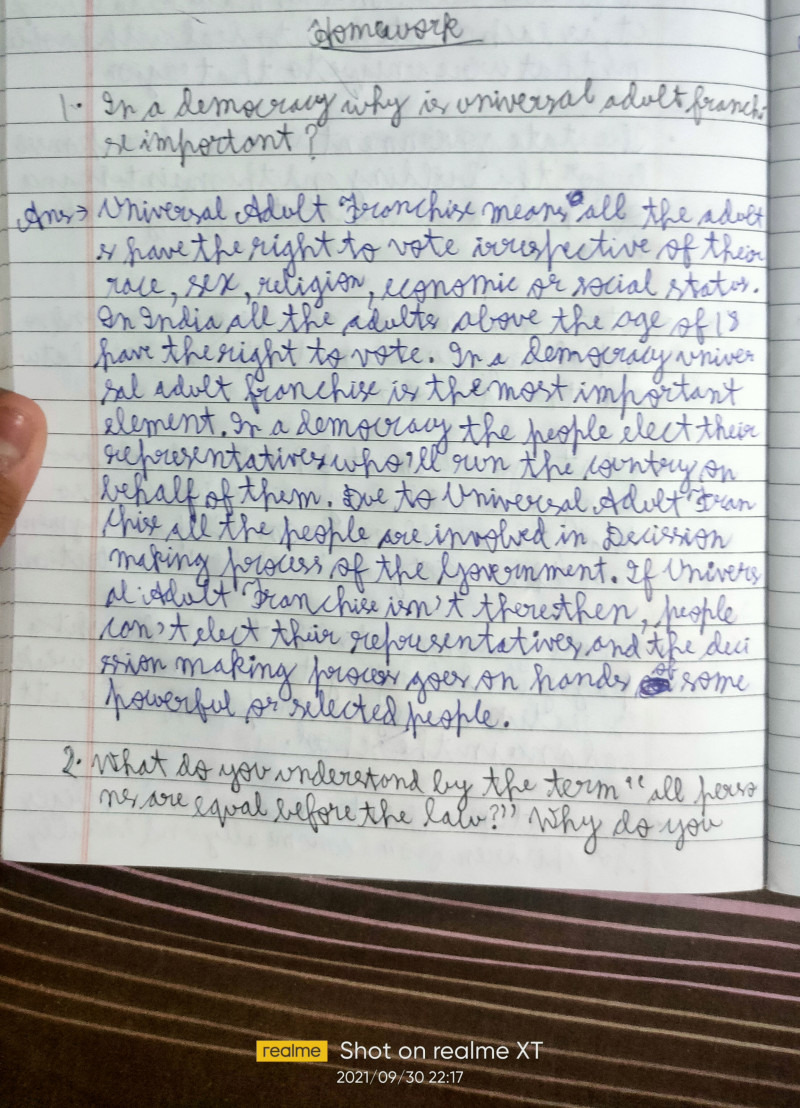 Homework
1. In a democracy why is universal adult franchi
se important?
Ans→ Universal Adult Franchise means all the adult
s have the right to vote irrespective of their
race, sex, religion, economic or social status.
In India all the adults above the age of 18
have the right to vote. In a democracy univer
sal adult franchise is the most important
element. In a democracy the people elect their
representatives who'll run the country on
behalf of them. Due to Universal Adult Fran
chise all the people are involved in Decission
making process of the Government. If Univers
al Adult Franchise isn't there then, people
can't elect their representatives, and the deci
ssion making process goes on hands of some
powerful or selected people.
2. What do you understand by the term "all perso
ns are equal before the law?" Why do you
realme Shot on realme XT
2021/09/30 22:17